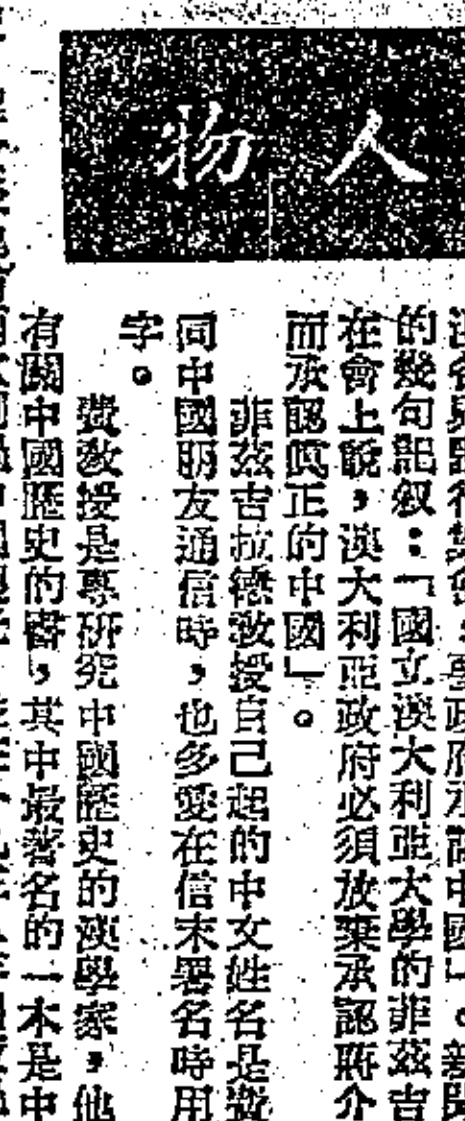 人物
行集會,要政府承認中國」。新聞
的幾句記叙:「國立澳大利亞大學的菲茲吉
在會上說,澳大利亞政府必須放棄承認蔣介
而承認眞正的中國」。
菲茲吉拉德敎授自己起的中文姓名是費
同中國朋友通信時,也多愛在信末署名時用
字。
費敎授是專研究中國歷史的漢學家,他
有關中國歷史的書,其中最著名的一本是中